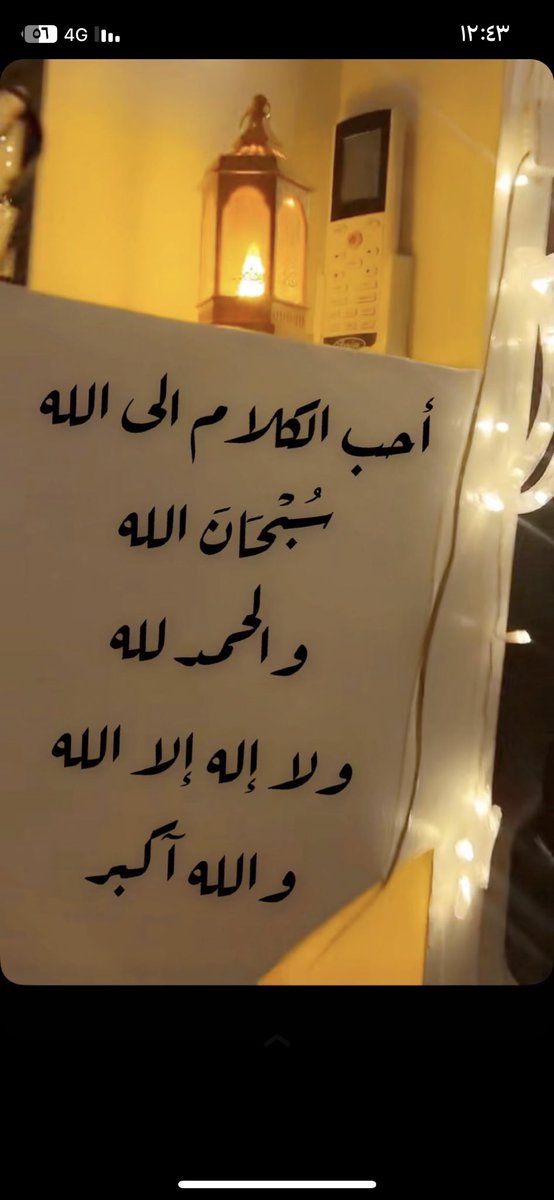 ٥٦ 4G ١٢:٤٣
أحب الكلام الى الله
سُبْحَانَ الله
والحمد لله
ولا إله إلا الله
والله آكبر